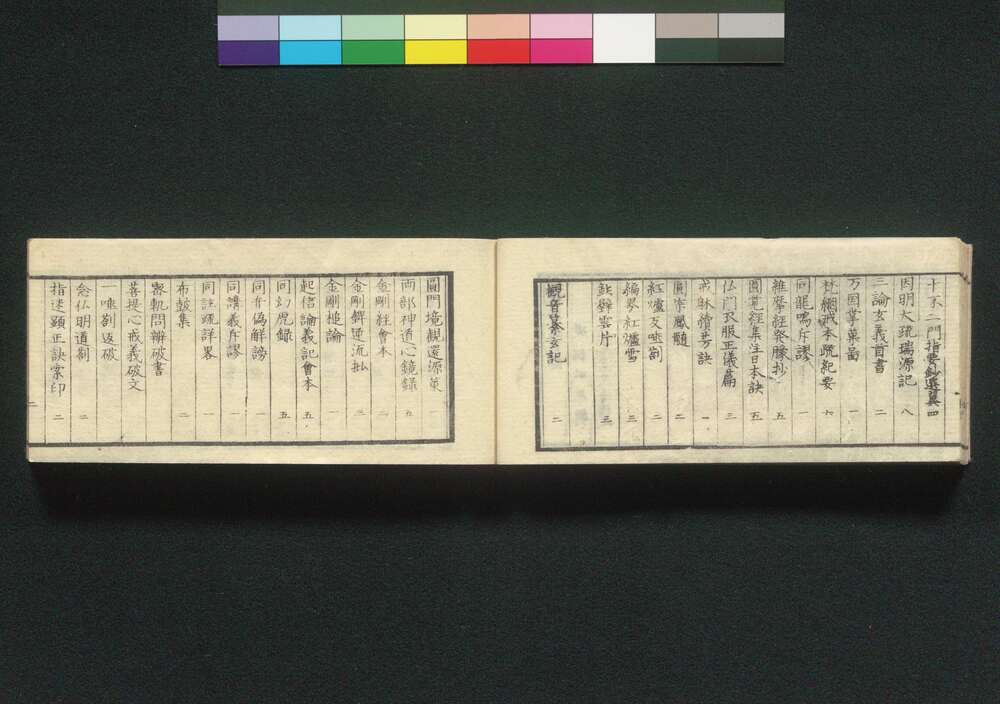 十不二門指要鈔選翼 四
因明大疏瑞源記 八
三論玄義首書 二
万国掌菓啚 一
梵網戒本疏紀要 六
同龍鳴斥謬 一
維摩経発矇抄 五
圓覚経集注日本訣 五
仏门衣服正儀篇 三
戒躰續芳訣 一
圓宗鳳髓 二
紅爐反唾箚 二
編參紅爐雪 三
鉄壁雲片 三
觀音纂玄記 二
圓門境観還源策 一
両部神道心鏡録 五
金剛経會本 二
金剛錍逆流批 三
金剛槌論 一
起信論義記會本 五
同幻虎録 五
同弁偽解謗 一
同講義斥謬 一
同註疏詳畧 一
布鼓集 二
密軌問辨破書
菩提心戒義破文
一唯劄返破
念仏明道劄 二
指迷顕正訣索印 二